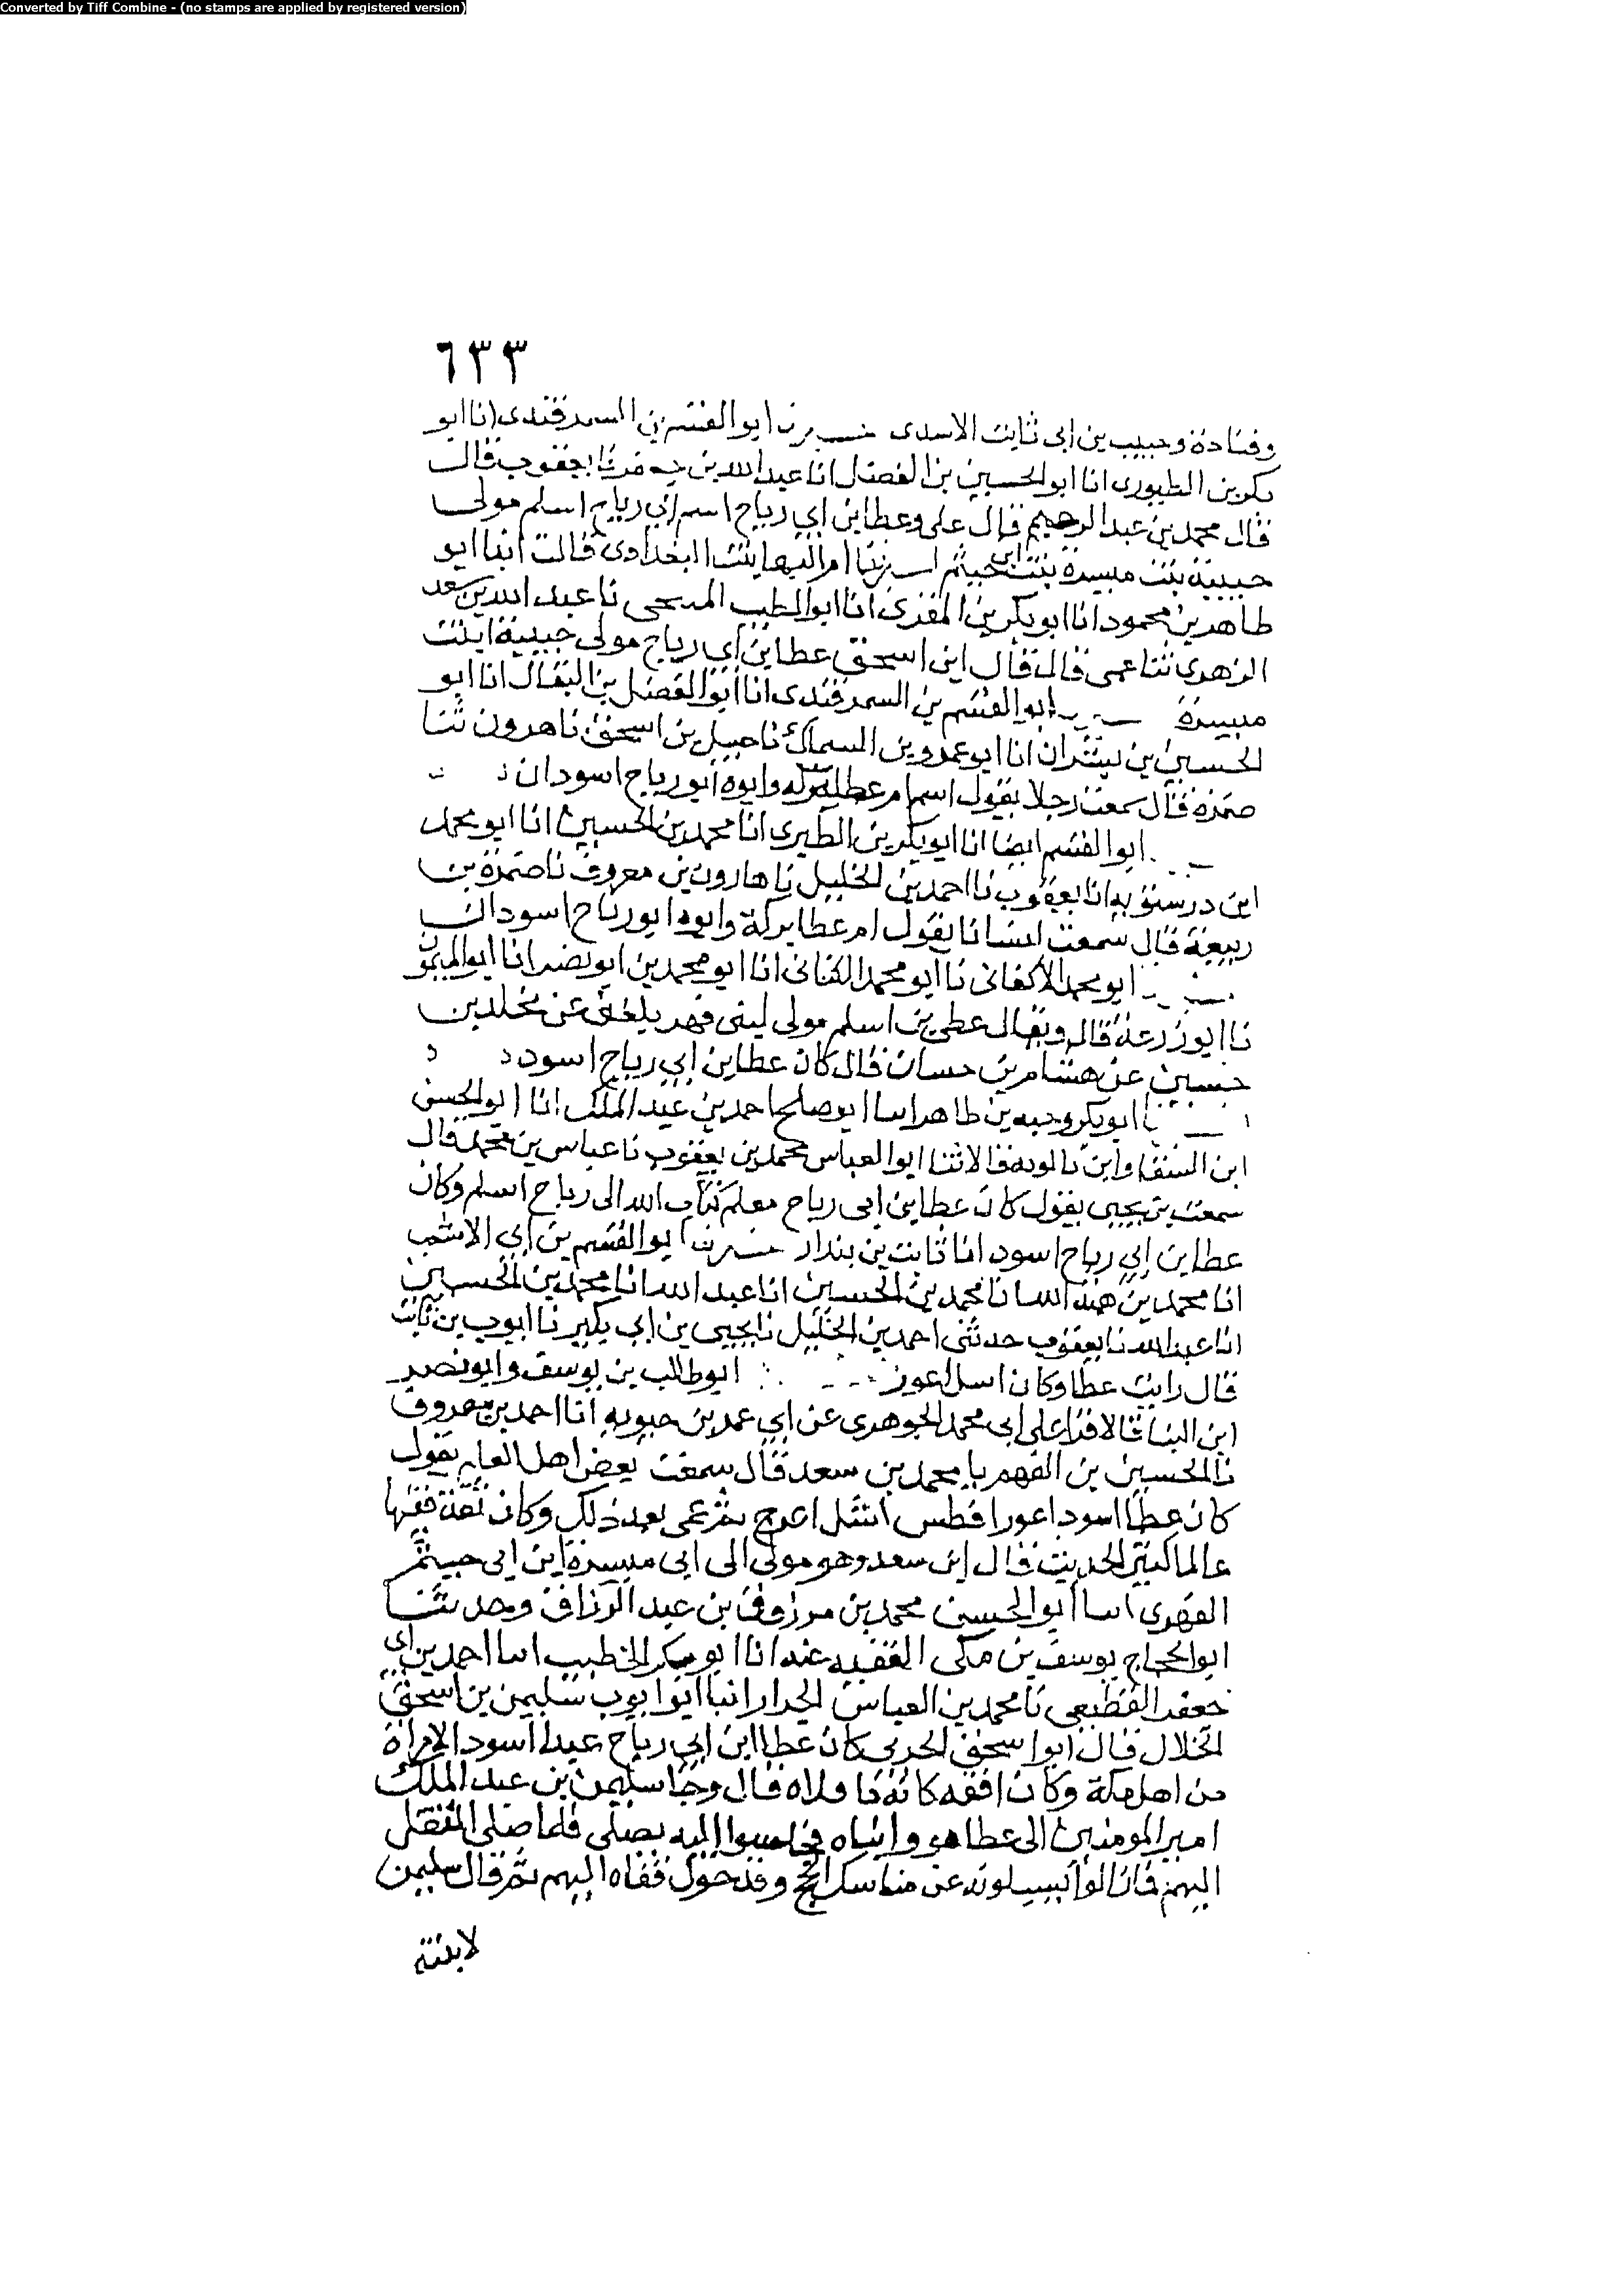 Converted by Tiff Combine - (no stamps are applied by registered version)
٦٣٣
وقتادة وحبيب بن ابى ثابت الاسدى ابو القسم بن السمرقندى انا ابو
بكر بن الطبورى انا ابو الحسين بن الفضل انا عبد الله بن يعقوب قال
قال محمد بن عبد الرحيم قال على وعطا بن ابي رباح اسم ابي رباح اسلم مولى
حبيبة بنت ميسرة بنت ابى خيثم ام البها بنت البغدادى قالت انبا ابو
طاهر بن محمود انا ابو بكر بن المقرى انا ابو الطيب المنبجى نا عبد الله بن سعد
الزهرى ثنا عمى قال قال ابن اسحق عطا بن ابي رباح مولى حبيبة ابنت
ميسرة ابو القسم بن السمرقندى انا ابو الفضل بن البقال انا ابو
الحسين بن بشران انا ابو عمرو بن السماك نا حنبل بن اسحق نا هرون ثنا
ضمرة قال سمعت رجلا يقول اسم ام عطا بركه وابوه ابو رباح اسودان
ابو القسم ايضا انا ابو بكر بن الطبرى انا محمد بن الحسين انا ابو محمد
ابن درستويه انا يعقوب نا احمد بن الخليل نا هارون بن معروف نا ضمرة بن
ربيعة قال سمعت انسانا يقول ام عطا بركة وابوه ابو رباح اسودان
ابو محمد الاكفانى نا ابو محمد الكتانى انا ابو محمد بن ابو نصر انا ابو الميمون
نا ابو زرعة قال ويقال عطا بن اسلم مولى لبنى فهر بلغنى عن مخلد بن
حسين عن هشام بن حسان قال كان عطا بن ابي رباح اسود
ابو بكر وجيه بن طاهر انا ابو صلح احمد بن عبد الملك انا ابو الحسن
ابن السقا وابن بالويه قالا ثنا ابو العباس محمد بن يعقوب نا عباس بن محمد قال
سمعت يحيى يقول كان عطا بن ابى رباح معلم كتاب ابى رباح اسلم وكان
عطا بن ابي رباح اسود انا ثابت بن بندار ابو القسم بن ابي الاشعب
انا محمد بن هبة الله انا محمد بن الحسين انا عبد الله انا محمد بن الحسين
انا عبد الله نا يعقوب حدثنى احمد بن الخليل نا يحيى بن ابي بكير نا ايوب بن ثابت
قال رايت عطا وكان اعور ابو طالب بن يوسف وابو نصر
ابن البنا قالا قرا على ابى محمد الجوهرى عن ابي عمر بن حيويه انا احمد بن معروف
نا الحسين بن الفهم نا محمد بن سعد قال سمعت بعض اهل العلم يقول
كان عطا اسود اعور افطس اشل اعرج ثم عمى بعد ذلك وكان ثقة فقيها
عالما كثير الحديث قال ابن سعد وهو مولى الى ابى ميسرة ابن ابى خيثم
الفهرى انا ابو الحسن محمد بن مرزوق بن عبد الرزاق وحدثنا
ابو الحجاج يوسف بن مكى الفقيه عنه انا ابو بكر الخطيب انا احمد بن ابي
جعفر القطيعى نا محمد بن العباس الخزاز انبا ابو ايوب سليمن بن اسحق
الخلال قال ابو اسحق الحربى كان عطا ابن ابي رباح عبدا اسود لامراة
من اهل مكة وكان انفه كانه باقلاه قال وجا سليمن بن عبد الملك
امير المومنين الى عطا هو وابناه فجلسوا اليه يصلى فلما صلى انفتل
اليهم فما زالوا يسيلونه عن مناسك الحج وقد حول قفاه اليهم ثم قال سليمن
لابنيه